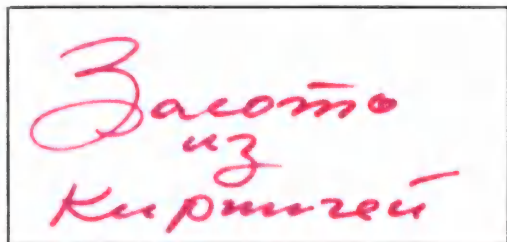 Засото
из
кирпичей